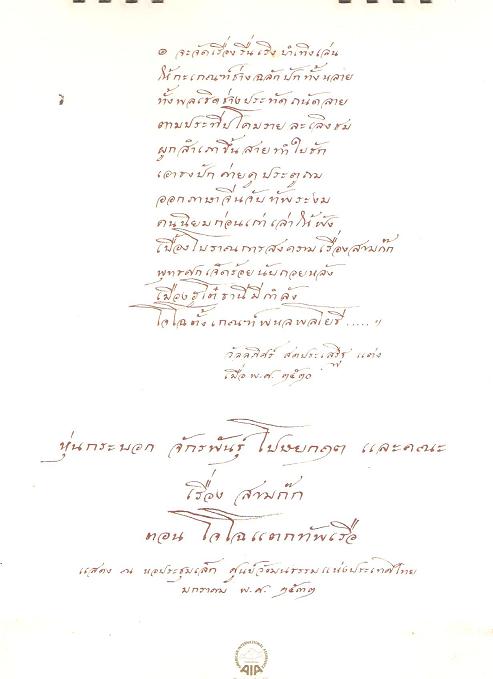 ๏ จะจัดเรื่องรื่นเริงบำเทิงเล่น
ให้กะเกณฑ์ช่างฉลักปักทั้งหลาย
ทั้งพลเชิดช่างประทัดถนัดลาย
ตามประทีปโคมรายละเลิงชม
ผูกสำเภาขึ้นสายทำใบชัก
เอาธงปักค่ายคูประตูถม
ออกภาษาจีนจับทัพระงม
คนนิยมก่อนเก่าเล่าให้ฟัง
เบื้องโบราณการสงครามเรื่องสามก๊ก
พุทธศกเจ็ดร้อยนับถอยหลัง
เมืองฮูโต๋ธานีมีกำลัง
โจโฉตั้งเกณฑ์พหลพลโยธี.....ฯ
วัลลภิศร์ สดประเสริฐ แต่ง
เมื่อ พ.ศ. ๒๕๓๐
หุ่นกระบอก จักรพันธุ์ โปษยกฤต และคณะ
เรื่อง สามก๊ก
ตอน โจโฉแตกทัพเรือ
แสดง ณ หอประชุมเล็ก ศูนย์วัฒนธรรมแห่งประเทศไทย
มกราคม พ.ศ. ๒๕๓๒
AIA